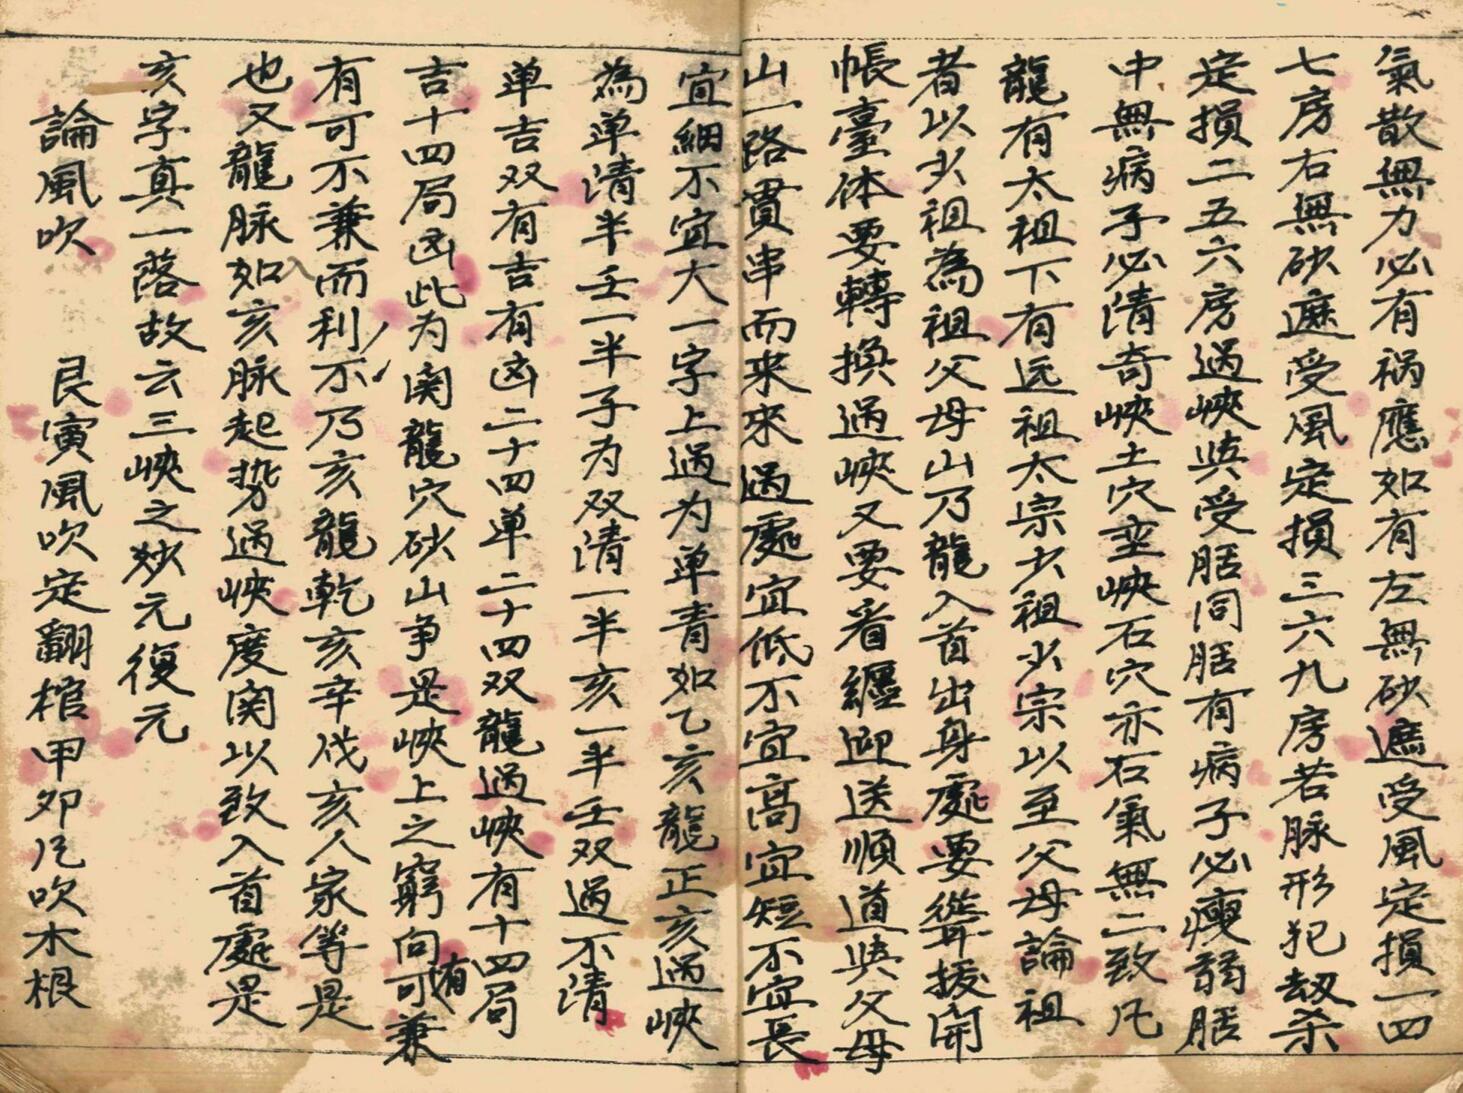 氣散無力必有祸應如有左無砂遮受風定損一四
七房右無砂遮受風定損三六九房若脉形犯刼杀
定損二五六房過峽與受胎同胎有病子必瘦弱胎
中無病子必清奇峽土穴坐峽石穴亦石氣無二致凡
龍有太祖下有远祖太宗少祖少宗以至父母論祖
者以少祖為祖父母山乃龍入首出身處要聳拔開
帳臺体要轉換過峽又要看纏迎送順道與父母
山一路貫串而來來過處宜低不宜高宜短不宜長
宜細不宜大一字上過为单青如乙亥龍正亥過峽
為单清半壬一半子为双清一半亥一半壬双過不清
单吉双有吉有凶二十四单二十四双龍過峽有十四局
吉十四局凶此为関龍穴砂山争是峽上之窮向可有兼
有可不兼而利不不乃亥龍乾亥辛戌亥人家等是
也又龍脉如亥脉起势過峽度関以致入首處是
亥字真一落故云三峽之妙元復元
論風吹　艮寅風吹定翻棺甲卯凡吹木根